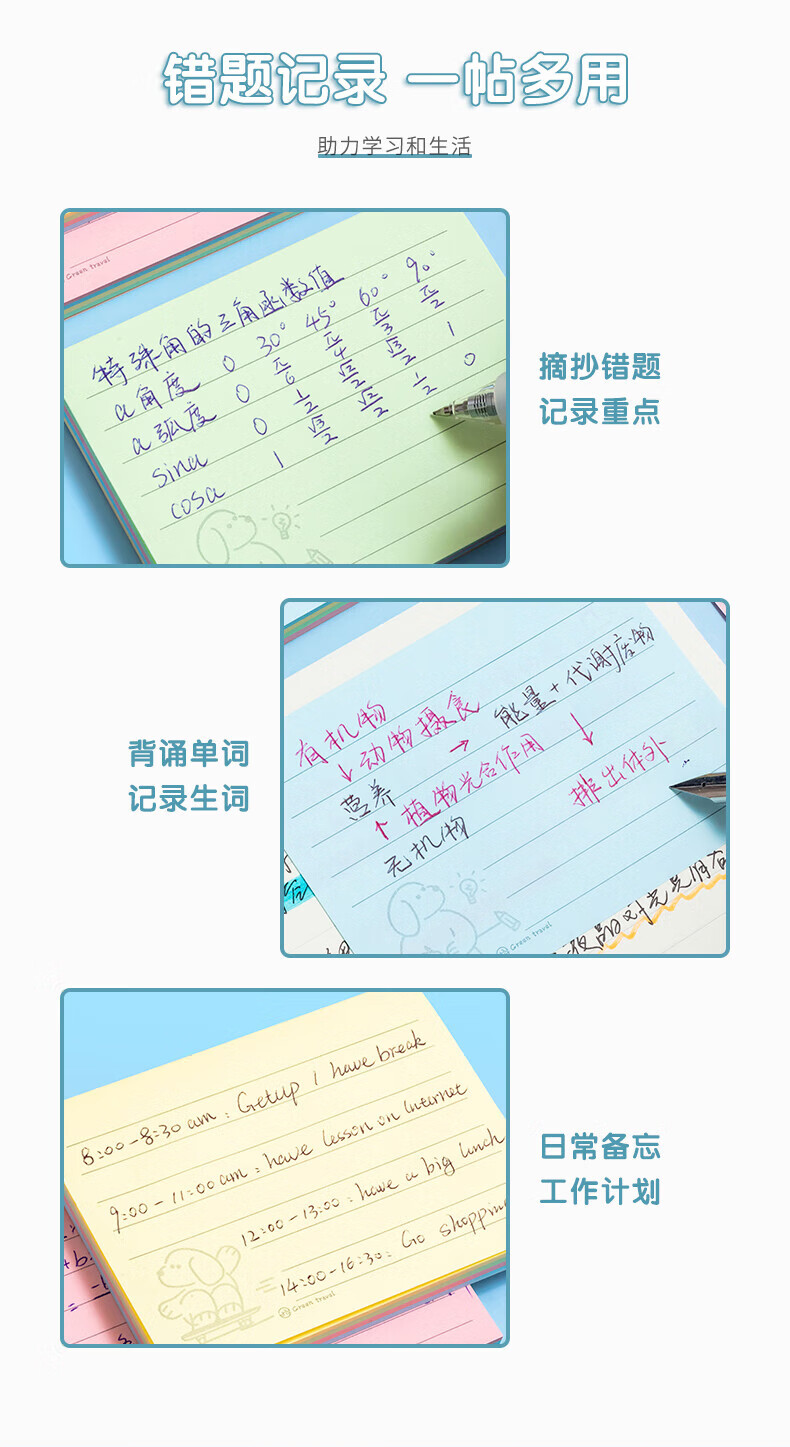 错题记录 一帖多用
助力学习和生活
Green travel
特殊角的三角函数值
α角度 0 30° 45° 60° 90°
α弧度 0 π/6 π/4 π/3 π/2
sinα 0 1/2 √2/2 √3/2 1
cosα 1 √3/2 √2/2 1/2 0
摘抄错题
记录重点
有机物
↓动物摄食 能量+代谢废物
营养 → ↓
↑植物光合作用 排出体外
无机物
Green travel
背诵单词
记录生词
8:00-8:30 am : Getup I have break
9:00-11:00 am : have lesson on Internet
12:00-13:00 : have a big lunch
14:00-16:30 : Go shoppin
Green travel
日常备忘
工作计划